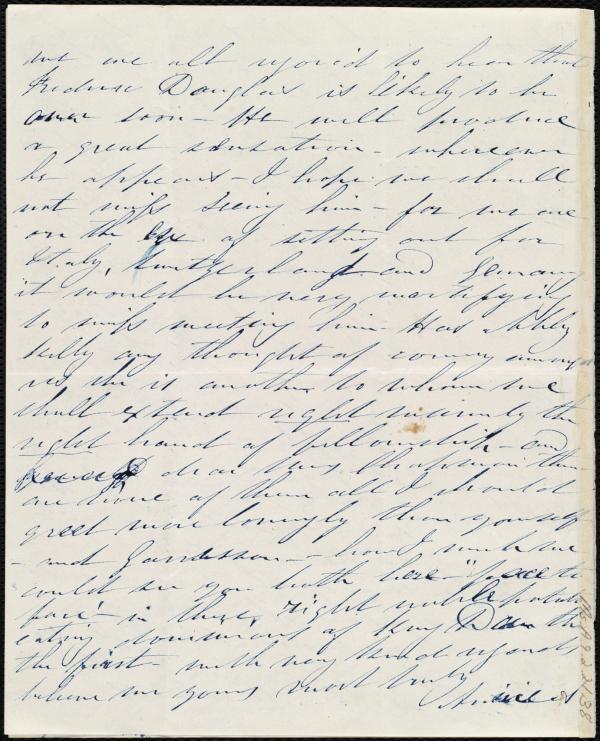 we are all rejoic'd to hear that
Frederic Douglas is likely to be
over soon - He will produce
a great sensation - wherever
he appears - I hope we shall
not miss seeing him - for we are
on the eve of setting out for
Italy, Switzerland and Germany
it would be very mortifying
to miss meeting him - Has Abby
Kelly any thought of coming amongst
us she is another to whom we
shall extend right sincerely the
right hand of fellowship - and
dear Mrs Chapman there
are none of them all I should
greet more lovingly than yourself
- and Garrison - how I wish we
could see you both here "face to
face" in these right noble potatoe
eating dominions of King Dan the
the first - with very kind regards
believe me yours most truly